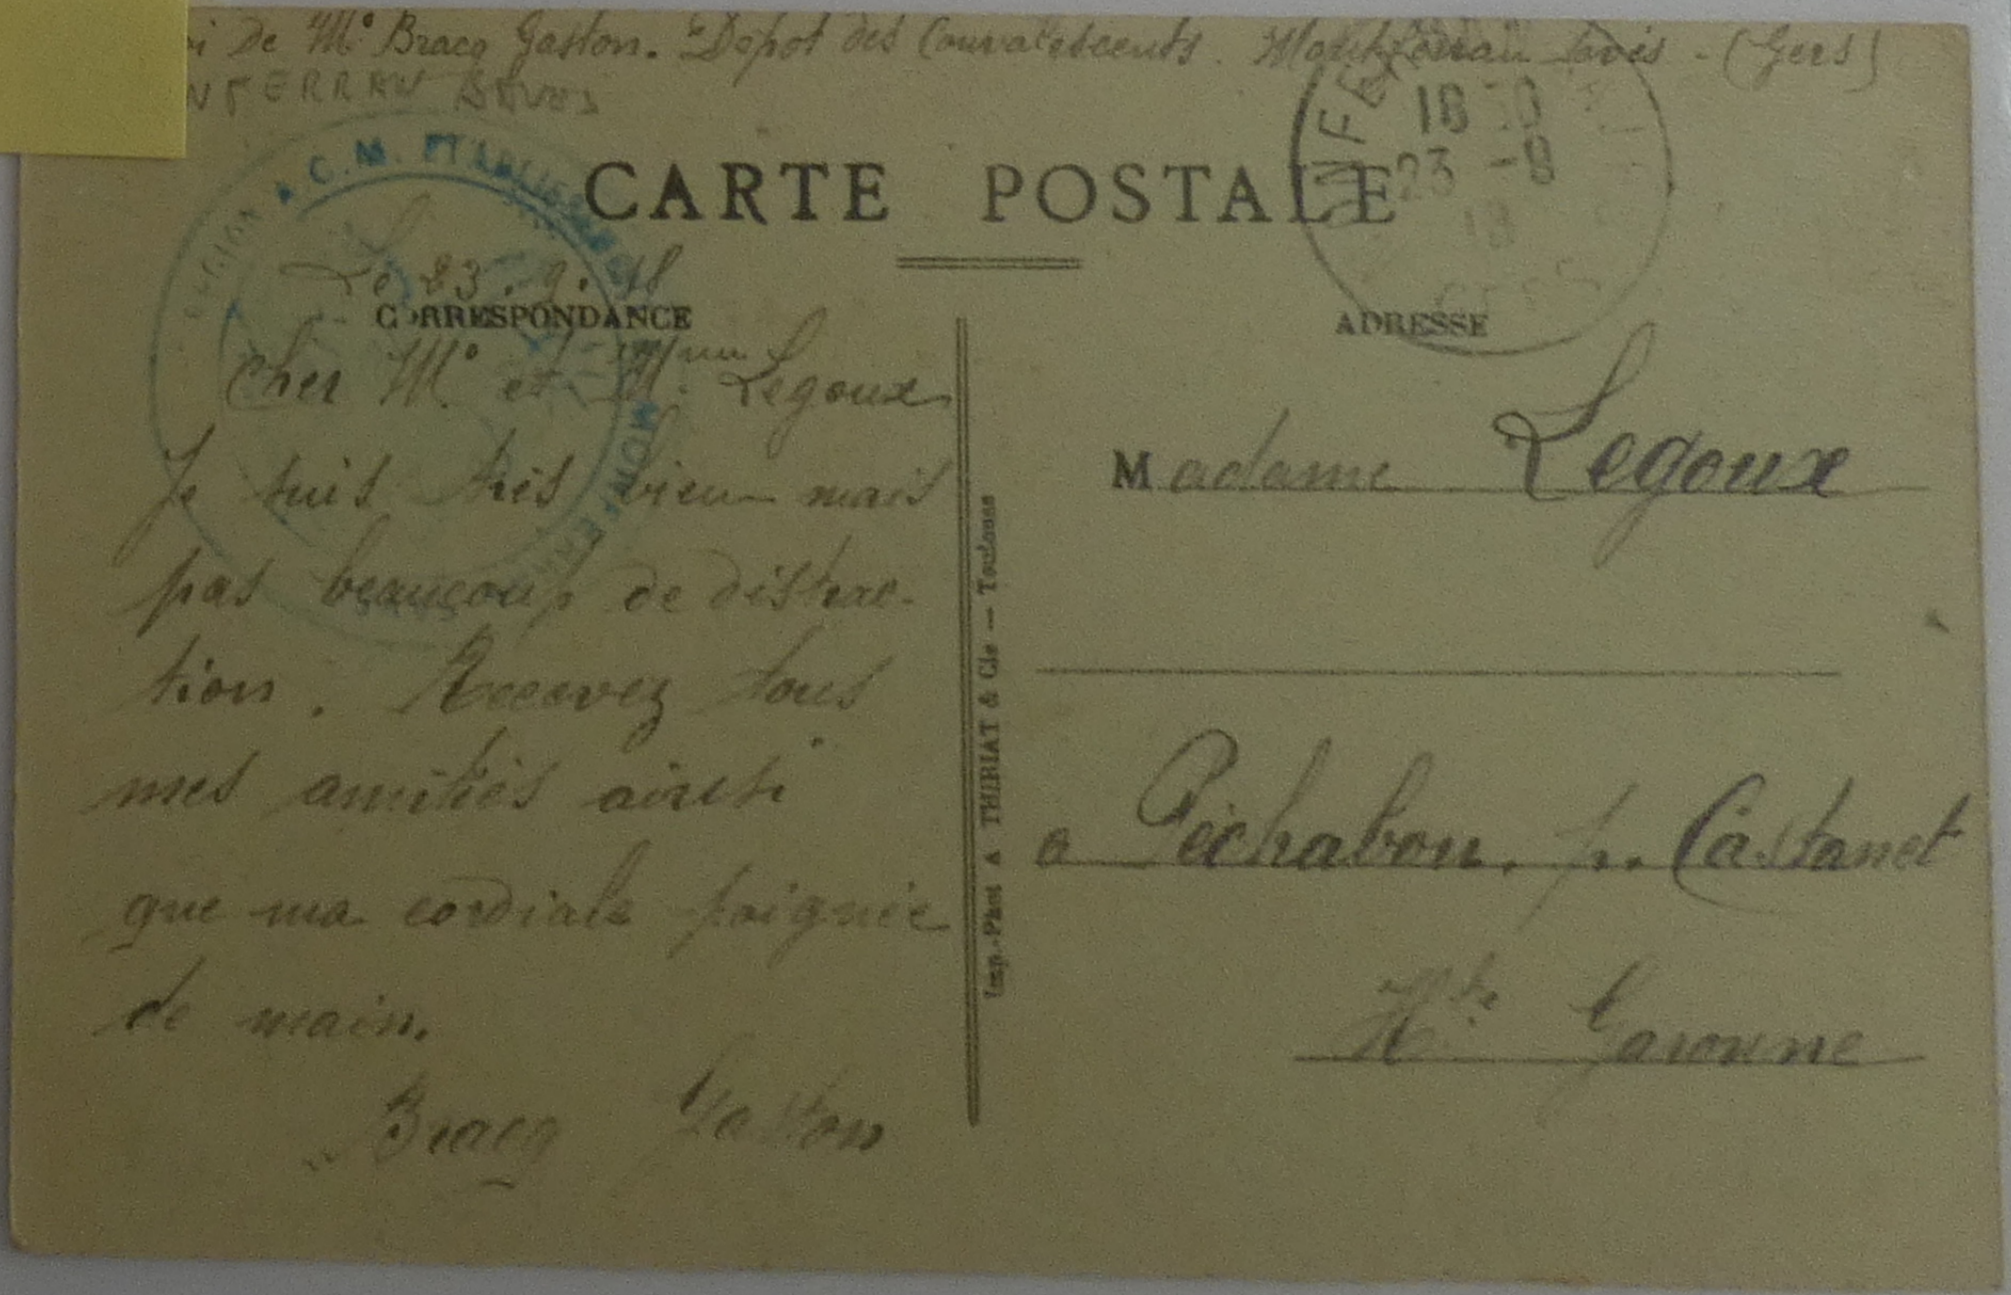 i de Mr Bracq Gaston. Dépot des Convalescents. Montferran Savès - (Gers)
NFERRAN SAVES
CARTE POSTALE
RÉGION A.C.M. ETABLISSEMENT
MONFERRAN
NFE
18 30
23 -9
18
GERS
Le 23.9.18
CORRESPONDANCE
ADRESSE
Cher Mr et Mme Legoux
Je suis très bien mais
pas beaucoup de distrac-
tion. Recevez tous
mes amitiés ainsi
que ma cordiale poignée
de main.
Bracq Gaston
Imp.-Phot A THIRIAT & Cie — Toulouse
Madame Legoux
a Péchabou. p. Castanet
Hte Garonne